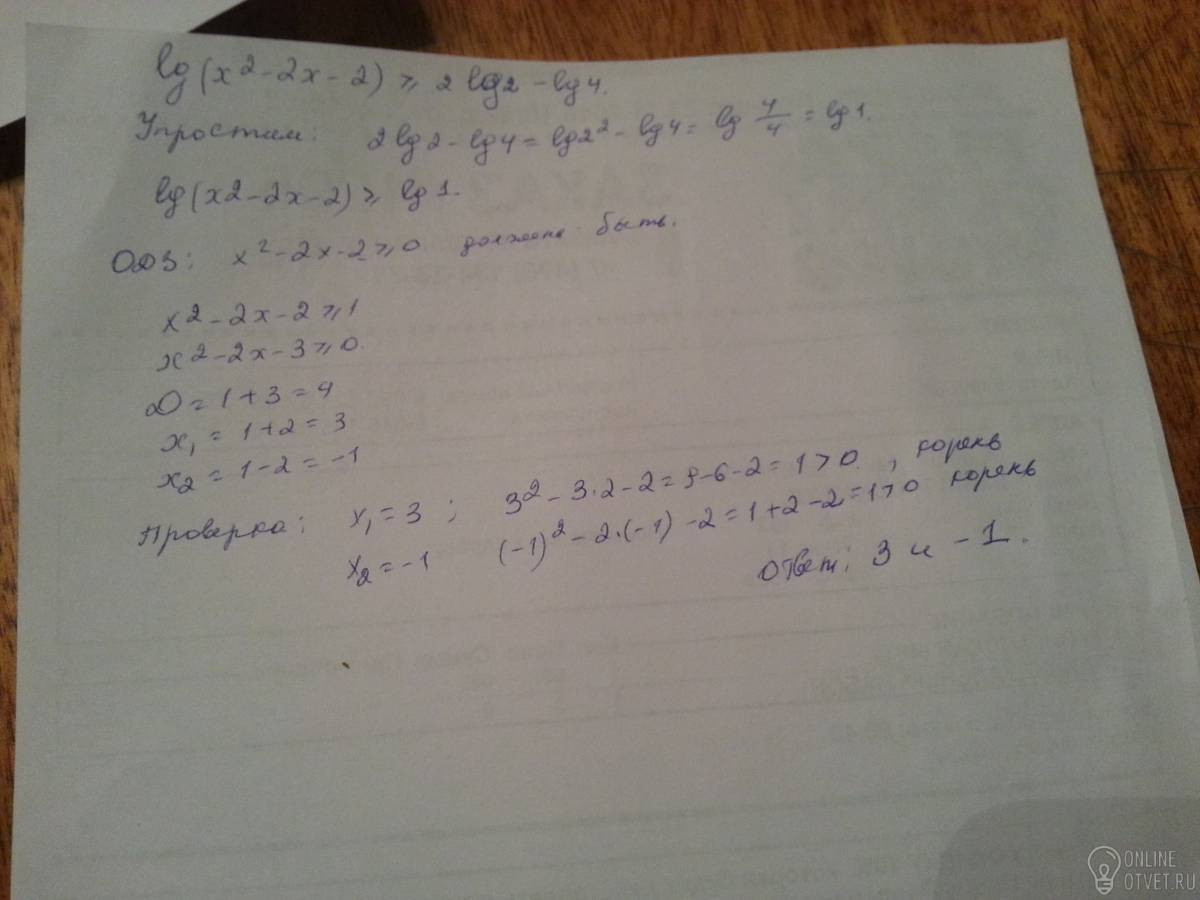 lg(x²-2x-2) ⩾ 2 lg2 - lg4.
Упростим: 2lg2 - lg4 = lg2² - lg4 = lg 4/4 = lg1.
lg(x2-2x-2) ⩾ lg1.
ОДЗ: x²-2x-2⩾0 должено быть.
x2-2x-2⩾1
x2-2x-3⩾0.
D = 1+3=4
x₁ = 1+2 = 3
x₂ = 1-2 = -1
Проверка: x₁ = 3 ; 3²-3·2-2=9-6-2=1>0. , корень
x₂ = -1 (-1)²-2·(-1)-2=1+2-2=1>0 корень
Ответ: 3 и -1.
ONLINE
OTVET.RU